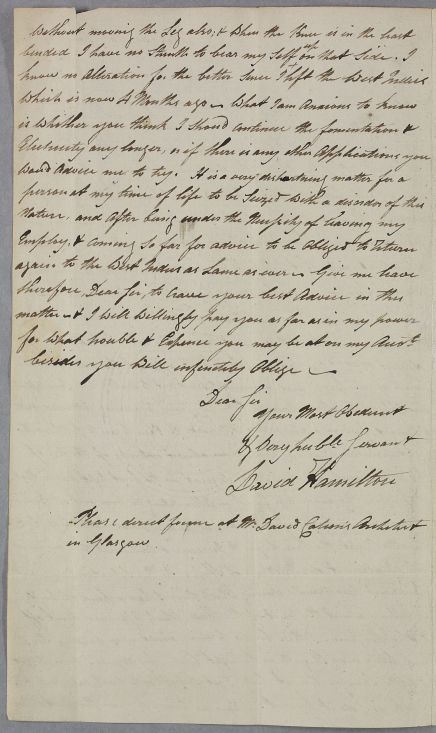 without moving the Leg also; & when the Knee is in the least
bended I have no Strength to bear my Self up on that Side. I
know no Alteration for the better Since I left the West Indies
Which is now 4 Months ago. What I am Anxious to know
is Whether you think I Should continue the fomentation &
Electricity any longer, or if there is any other Applications you
woud Advice me to try. It is a very disheartning matter for a
person at my time of life to be Seized with a disorder of this
Nature, and After being under the Necessity of leaving my
Employ, & Coming So far for advice to be Obliged to Return
again to the West Indies as Lame as ever. Give me leave
therefore, Dear Sir, to Crave your best Advice in this
matter & I will Willingly pay you as far as in my power
for What trouble & Expence you may be at on my Acco.t
besides you Will infinitely Oblige
Dear Sir
Your Most Obedient
& Very humble Servant
David Hamilton
Please direct for me at Mr. David Architect
in Glasgow